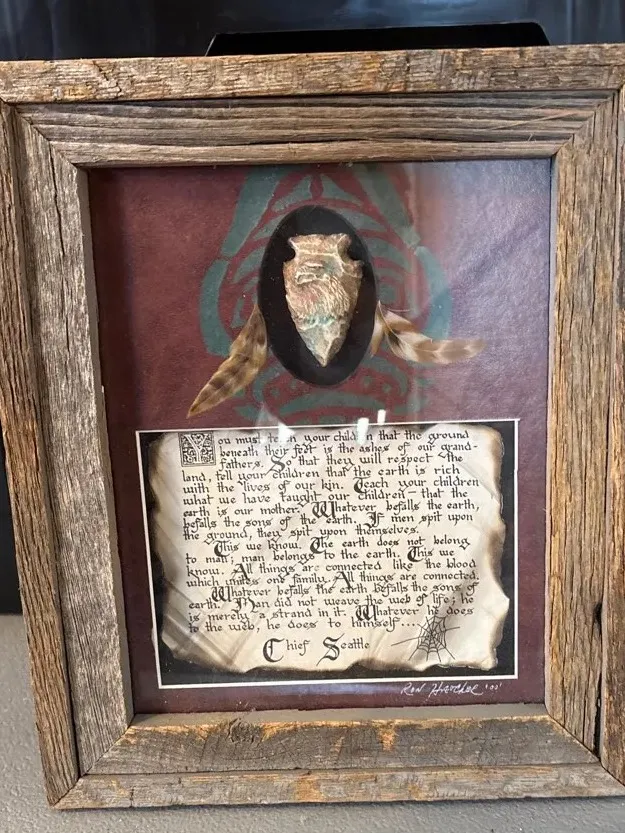 You must teach your children that the ground
beneath their feet is the ashes of our grand-
fathers. So that they will respect the
land, tell your children that the earth is rich
with the lives of our kin. Teach your children
what we have taught our children - that the
earth is our mother. Whatever befalls the earth,
befalls the sons of the earth. If men spit upon
the ground, they spit upon themselves.
This we know. The earth does not belong
to man; man belongs to the earth. This we
know. All things are connected like the blood
which unites one family. All things are connected.
Whatever befalls the earth befalls the sons of
earth. Man did not weave the web of life; he
is merely a strand in it. Whatever he does
to the web, he does to himself....
Chief Seattle
Ron